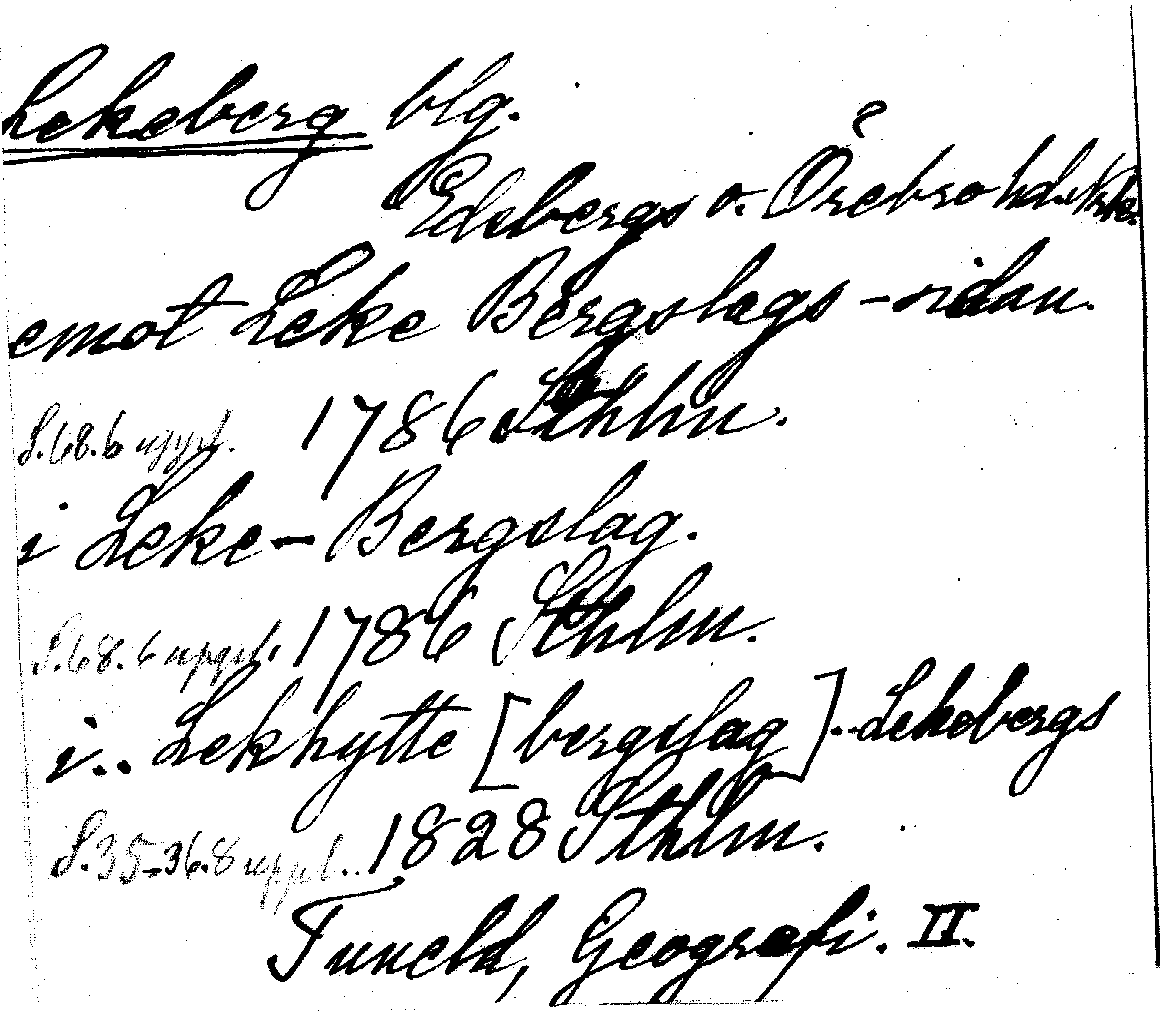 Lekeberg blg.
Edsbergs o. Örebro hd.
emot Leke Bergslags-sidan.
S. 68. 6 uppl. 1786 Sthlm.
i Leke-Bergslag.
S. 68. 6 uppl. 1786 Sthlm.
i.. Lekhytte [bergslag].. Lekebergs
S. 35-36. 8 uppl... 1828 Sthlm.
Tuneld, Geografi. II.